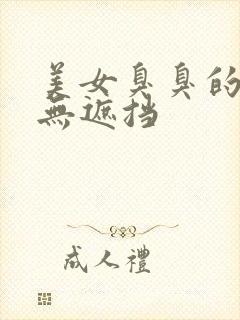 美女臭臭的
無遮挡
成人禮